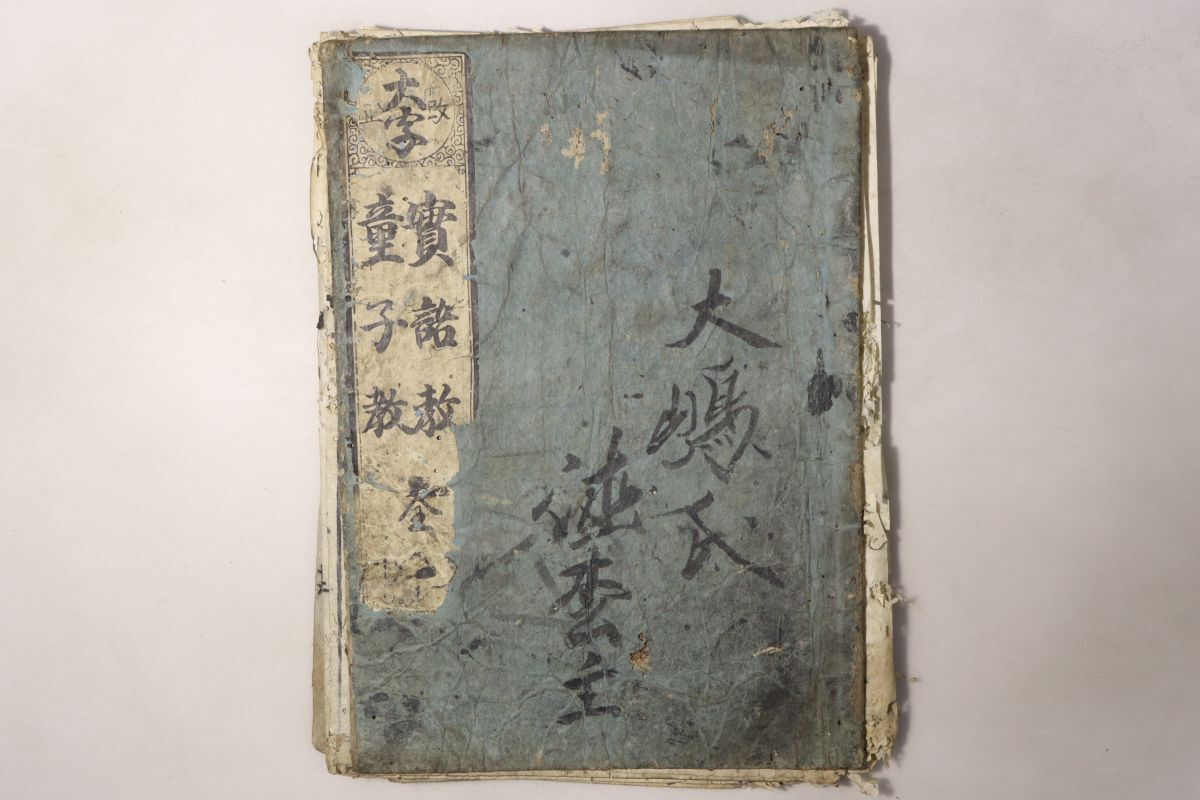 大嶋氏
德枩主
改正
大字
實語教
童子教
全